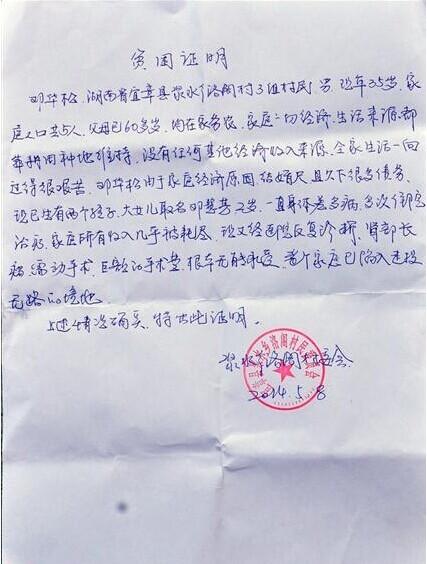 贫困证明
邓华松，湖南省宜章县浆水乡洛阁村3组村民，男，现年35岁，家
庭人口共5人，父母已60多岁，均在家务农，家庭一切经济、生活来源，都
靠耕田种地维持，没有任何其他经济收入来源，全家生活一向
过得很艰苦。邓华松由于家庭经济原因结婚尺且欠下很多债务，
现已生有两个孩子，大女儿取名邓 2岁，一直身体差多病，多次住院
治病，家庭所有收入几乎被耗尽，现又经医院反复诊断，肾部长
瘤，需动手术，巨额的手术费，根本无能承受，整个家庭已陷入走投
无路的境地。
上述情况确实，特出此证明。
浆水乡洛阁村委会
2014.5.8
宜章县浆水乡洛阁村民委员会